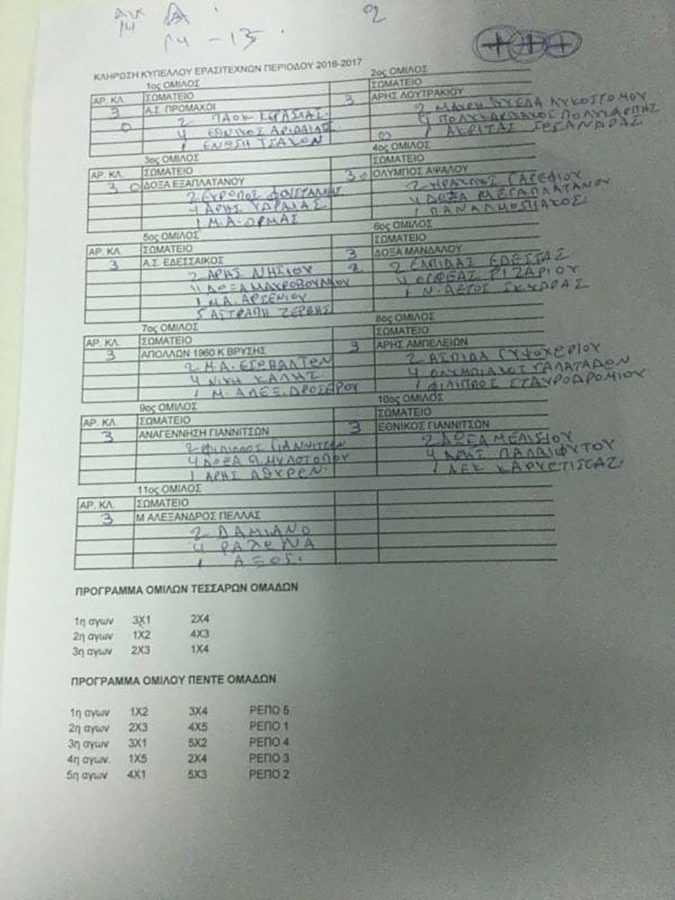 Α
14 - 15
2
ΚΛΗΡΩΣΗ ΚΥΠΕΛΛΟΥ ΕΡΑΣΙΤΕΧΝΩΝ ΠΕΡΙΟΔΟΥ 2016-2017
1ος ΟΜΙΛΟΣ 2ος ΟΜΙΛΟΣ
ΑΡ. ΚΛ. ΣΩΜΑΤΕΙΟ ΣΩΜΑΤΕΙΟ
3 Α.Σ. ΠΡΟΜΑΧΟΙ 3 ΑΡΗΣ ΛΟΥΤΡΑΚΙΟΥ
2 ΠΑΟΚ ΚΕΡΑΣΙΑΣ 2 ΜΑΥΡΗ ΘΥΕΛΑ ΛΥΚΟΣΤΟΜΟΥ
4 ΕΘΝΙΚΟΣ ΑΡΙΔΑΙΑΣ 4 ΠΟΛΥΚΑΡΠΙΑΚΟΣ ΠΟΛΥΚΑΡΠΗΣ
1 ΕΝΩΣΗ ΤΣΑΚΩΝ 1 ΑΚΡΙΤΑΣ ΣΩΣΑΝΔΡΑΣ
3ος ΟΜΙΛΟΣ 4ος ΟΜΙΛΟΣ
ΑΡ. ΚΛ. ΣΩΜΑΤΕΙΟ ΣΩΜΑΤΕΙΟ
3 ΔΟΞΑ ΕΞΑΠΛΑΤΑΝΟΥ 3 ΟΛΥΜΠΟΣ ΑΨΑΛΟΥ
2 ΕΥΡΩΠΟΣ 2 ΗΡΑΚΛΗΣ ΓΑΡΕΦΙΟΥ
4 ΑΡΗΣ ΥΔΡΑΙΑΣ 4 ΔΟΞΑ ΜΕΓΑΠΛΑΤΑΝΟΥ
1 Μ.Α. ΟΡΜΑΣ 1 ΠΑΝΑΛΜΩΠΙΑΚΟΣ
5ος ΟΜΙΛΟΣ 6ος ΟΜΙΛΟΣ
ΑΡ. ΚΛ. ΣΩΜΑΤΕΙΟ ΣΩΜΑΤΕΙΟ
3 Α.Σ. ΕΔΕΣΣΑΙΚΟΣ 3 ΔΟΞΑ ΜΑΝΔΑΛΟΥ
2 ΑΡΗΣ ΝΗΣΙΟΥ 2 ΕΛΠΙΔΑΣ ΕΔΕΣΣΑΣ
4 ΔΟΞΑ ΜΑΥΡΟΒΟΥΝΙΟΥ 4 ΟΡΦΕΑΣ ΡΙΖΑΡΙΟΥ
1 Μ.Α. ΑΡΣΕΝΙΟΥ 1 Ν. ΑΕΤΟΣ ΣΚΥΔΡΑΣ
5 ΑΣΤΡΑΠΗ ΖΕΡΒΗΣ
7ος ΟΜΙΛΟΣ 8ος ΟΜΙΛΟΣ
ΑΡ. ΚΛ. ΣΩΜΑΤΕΙΟ ΣΩΜΑΤΕΙΟ
3 ΑΠΟΛΛΩΝ 1960 Κ ΒΡΥΣΗΣ 3 ΑΡΗΣ ΑΜΠΕΛΕΙΩΝ
2 Μ.Α. ΕΣΩΒΑΛΤΩΝ 2 ΑΣΠΙΔΑ ΓΥΨΟΧΩΡΙΟΥ
4 ΝΙΚΗ ΚΑΛΗΣ 4 ΟΛΥΜΠΙΑΚΟΣ ΓΑΛΑΤΑΔΩΝ
1 Μ. ΑΛΕΞ. ΔΡΟΣΕΡΟΥ 1 ΦΙΛΙΠΠΟΣ ΣΤΑΥΡΟΔΡΟΜΙΟΥ
9ος ΟΜΙΛΟΣ 10ος ΟΜΙΛΟΣ
ΑΡ. ΚΛ. ΣΩΜΑΤΕΙΟ ΣΩΜΑΤΕΙΟ
3 ΑΝΑΓΕΝΝΗΣΗ ΓΙΑΝΝΙΤΣΩΝ 3 ΕΘΝΙΚΟΣ ΓΙΑΝΝΙΤΣΩΝ
2 ΦΙΛΙΠΠΟΣ ΓΙΑΝΝΙΤΣΩΝ 2 ΔΟΞΑ ΜΕΛΙΣΙΟΥ
4 ΔΟΞΑ Π. ΜΥΛΟΤΟΠΟΥ 4 ΑΡΗΣ ΠΑΛΑΙΦΥΤΟΥ
1 ΑΡΗΣ ΑΘΥΡΩΝ 1 ΛΕΥΚ ΚΑΡΥΩΤΙΣΣΑΣ
11ος ΟΜΙΛΟΣ
ΑΡ. ΚΛ. ΣΩΜΑΤΕΙΟ
3 Μ ΑΛΕΞΑΝΔΡΟΣ ΠΕΛΛΑΣ
2 ΔΑΜΙΑΝΟ
4 ΡΑΧΩΝΑ
1 ΑΞΟΣ
ΠΡΟΓΡΑΜΜΑ ΟΜΙΛΩΝ ΤΕΣΣΑΡΩΝ ΟΜΑΔΩΝ
1η αγων 3Χ1 2Χ4
2η αγων 1Χ2 4Χ3
3η αγων 2Χ3 1Χ4
ΠΡΟΓΡΑΜΜΑ ΟΜΙΛΟΥ ΠΕΝΤΕ ΟΜΑΔΩΝ
1η αγων 1Χ2 3Χ4 ΡΕΠΟ 5
2η αγων 2Χ3 4Χ5 ΡΕΠΟ 1
3η αγων 3Χ1 5Χ2 ΡΕΠΟ 4
4η αγων. 1Χ5 2Χ4 ΡΕΠΟ 3
5η αγων 4Χ1 5Χ3 ΡΕΠΟ 2